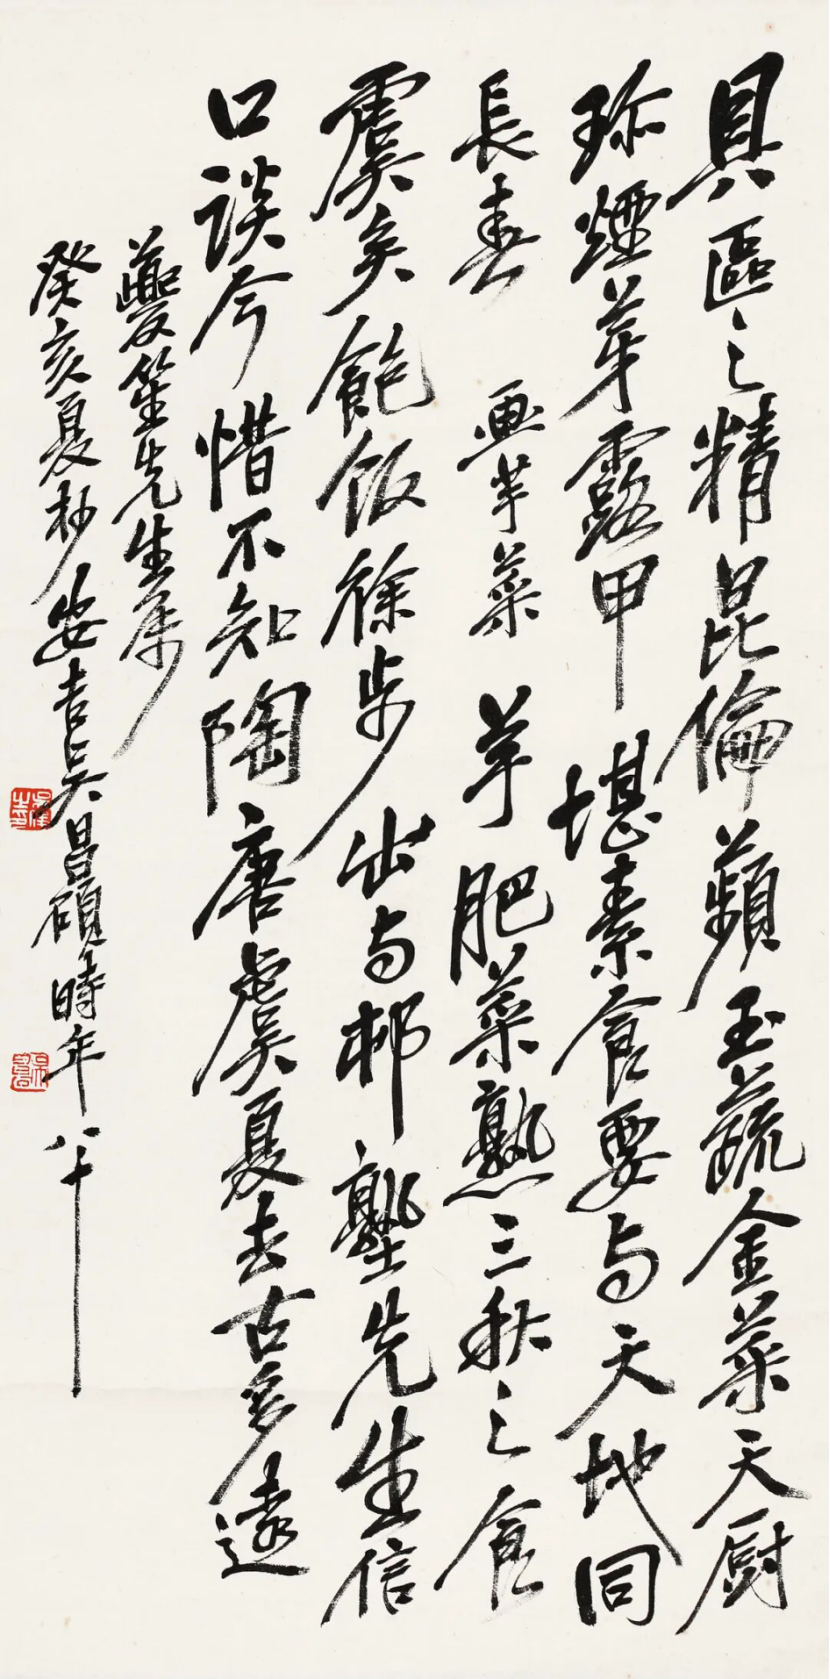 具區之精昆侖蘋玉蔬金菜天厨
珍煙芽露甲堪素食要与天地同
長春 画芋菜 芋肥菜熟三秋之食
虞矣飽飯徐步出与邨塾先生信
口談今惜不知陶唐虞夏去古多遠
夔笙先生属
癸亥夏杪安吉吴昌碩時年八十